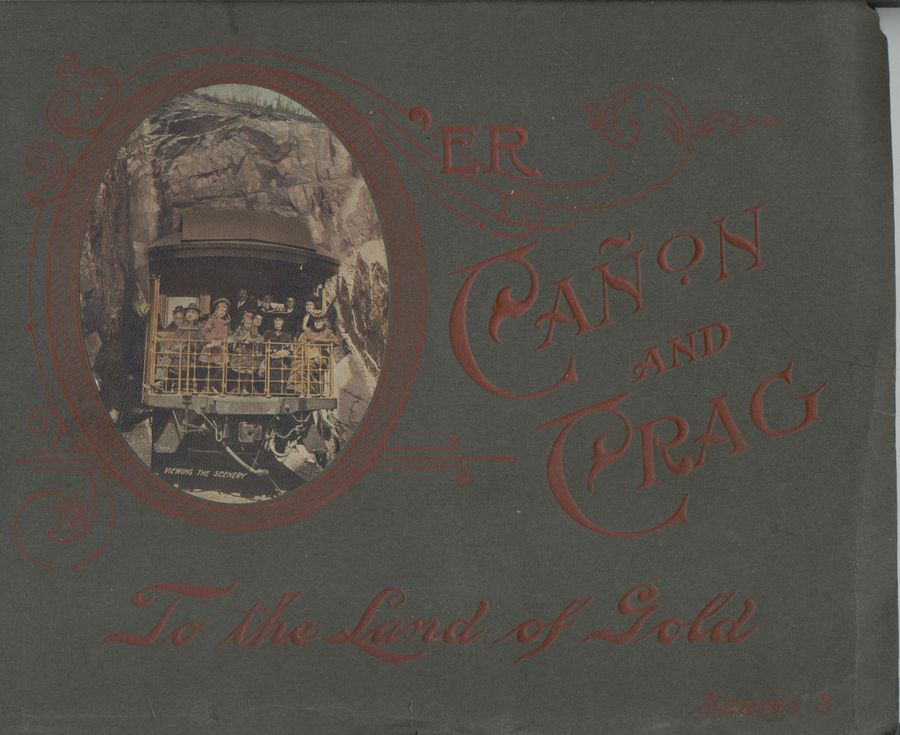 'ER
CAÑON
AND
CRAG
VIEWING THE SCENERY
To the Land of Gold
SERIES 3